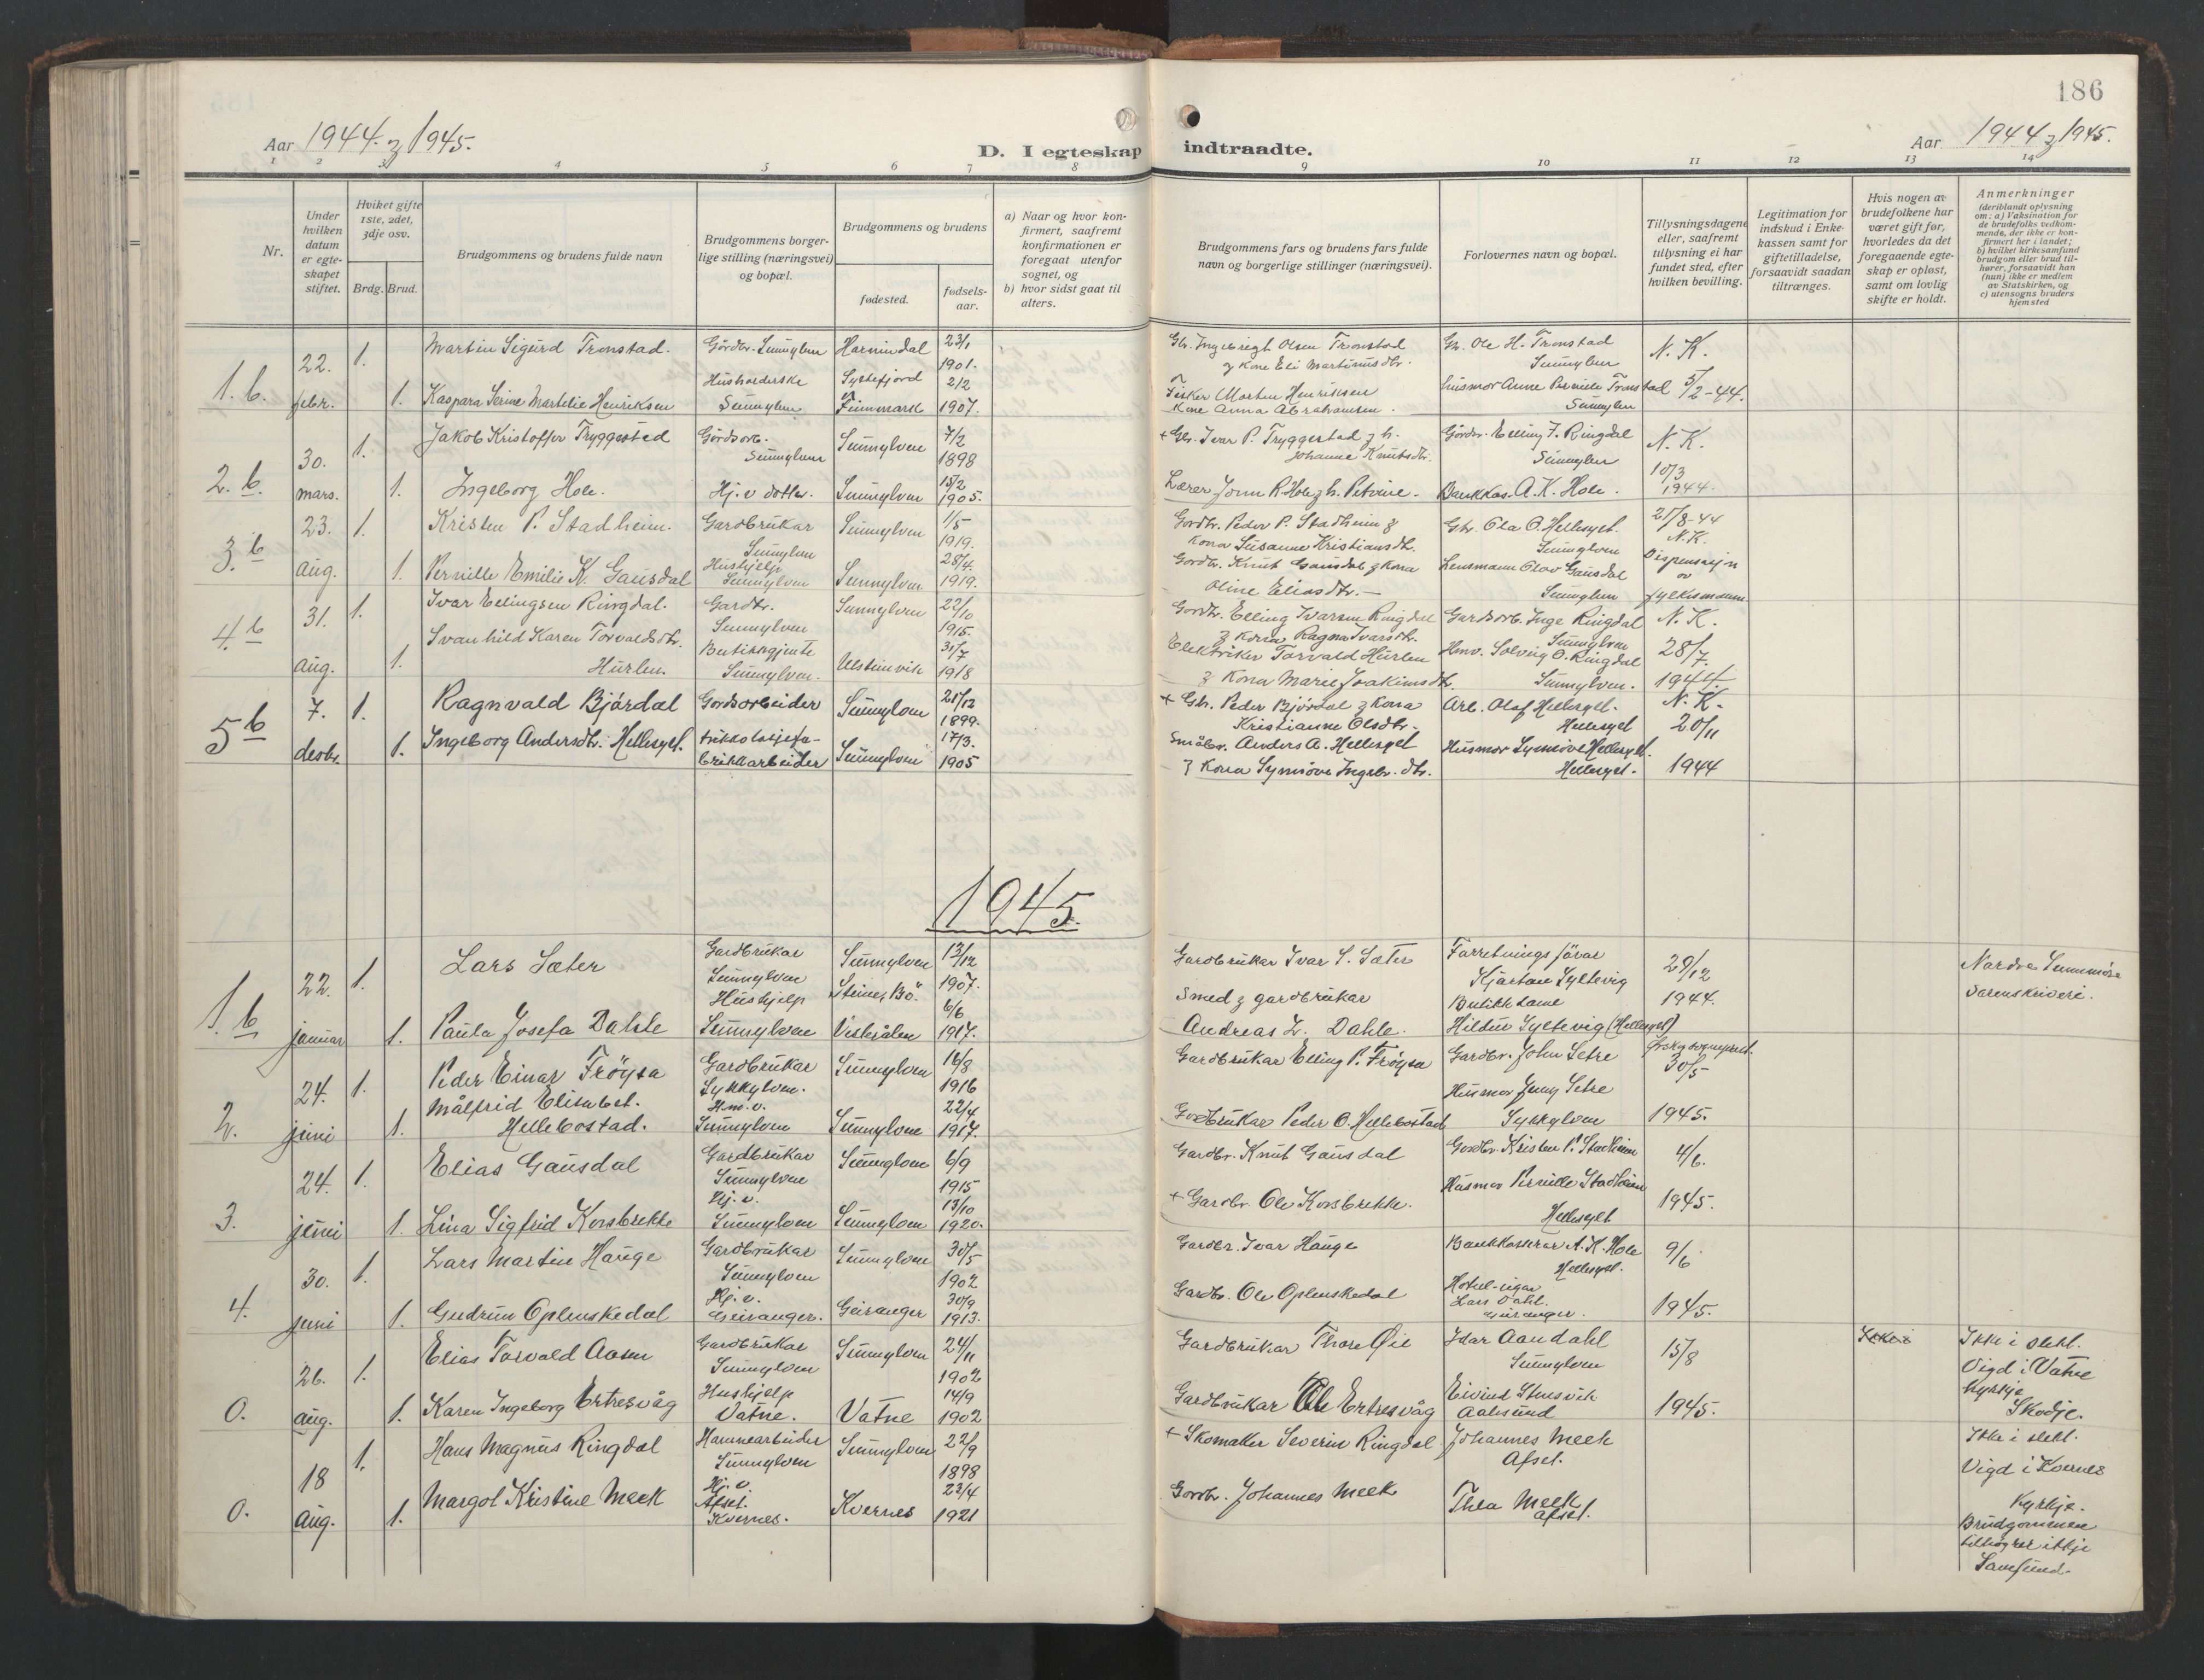 186
Aar 1944 & 1945.
D. I egteskap indtraadte.
Aar 1944 & 1945.
1 2 3 4 5 6 7 8 9 10 11 12 13 14
Nr.
Under hvilken datum er egteskapet stiftet.
Hviket gifte 1ste, 2det, 3dje osv.
Brdg. Brud.
Brudgommens og brudens fulde navn
Brudgommens borgerlige stilling (næringsvei) og bopæl.
Brudgommens og brudens
fødested.
fødselsaar.
a) Naar og hvor konfirmert, saafremt konfirmationen er foregaat utenfor sognet, og
b) hvor sidst gaat til alters.
Brudgommens fars og brudens fars fulde navn og borgerlige stillinger (næringsvei).
Forlovernes navn og bopæl.
Tillysningsdagene eller, saafremt tillysning ei har fundet sted, efter hvilken bevilling.
Legitimation for indskud i Enkekassen samt for giftetilladelse, forsaavidt saadan tiltrænges.
Hvis nogen av brudefolkene har været gift før, hvorledes da det foregaaende egteskap er opløst, samt om lovlig skifte er holdt.
Anmerkninger (deriblandt oplysning om: a) Vaksination for de brudefolks vedkommende, der ikke er konfirmert her i landet; b) hvilket kirkesamfund brudgom eller brud tilhører, forsaavidt han (hun) ikke er medlem av Statskirken, og c) utensogns bruders hjemsted
1. b. 22. febr. 1. Martin Sigurd Tronstad. Gårdbr. Sunnylven Hornindal 23/1 1901. Gbr. Ingebrigt Olsen Tronstad & Kone Eli Martinusdtr. Gbr. Ole H. Tronstad Sunnylven N. K.
1. Kaspara Serine Martilie Henriksen Husholderske Sunnylven Syltefjord Finnmark 2/2 1907. Fisker Morten Henriksen Kone Anna Abrahamsen. husmor Anne Pernille Tronstad Sunnylven 5/2-44.
2. b. 30. mars. 1. Jakob Kristoffer Tryggestad Gårdsarb. Sunnylven Sunnylven 7/2 1898 + Gbr. Ivar P. Tryggestad & h. Johanne Knutsdtr. Gårdbr. Elling I. Ringdal Sunnylven N. K.
1. Ingeborg Hole. Hj. v. dotter. Sunnylven 15/2 1905. Lærer Jonn R. Hole & h. Petrine. Bankkas. A. K. Hole. 10/3 1944.
3. b 23. aug. 1. Kristen P. Stadheim. Gardbrukar Sunnylven Sunnylven 1/5 1919. Gardbr. Peder P. Stadheim & Kona Susanne Kristiansdtr. Gbr. Ola O. Hellesylt. Sunnylven 21/8-44 N.K.
1. Pernille Emilie K. Gausdal Hushjelp Sunnylven Sunnylven 28/4. 1919. Gardbr. Knut Gausdal & Kona Oline Eliasdtr. Lensmann Olav Gausdal Sunnylven Dispensasjon av fylkesmann
4. b 31. aug. 1. Ivar Ellingsen Ringdal. Gardbr. Sunnylven Sunnylven 22/10 1915. Gardbr. Elling Ivarsen Ringdal & Kona Ragna Ivarsdtr. Gardsarb. Inge Ringdal Sunnylven N. K.
1. Svanhild Karen Torvaldsdtr. Hurlen. Butikkgjente Sunnylven. Ulsteinvik 31/7 1918 Elektriker Torvald Hurlen & Kona Marie Joakimsdtr. Hmv. Solveig O. Ringdal Sunnylven. 28/7. 1944
5 b 7. desbr. 1. Ragnvald Bjørdal Gardsarbeider Sunnylven 21/12 1899. + Gbr. Peder Bjørdal & Kona Kristianne Olsdtr. Arb. Olaf Hellesylt. Hellesylt N. K.
1. Ingeborg Andersdtr. Hellesylt. trikkotasjefabrikkarbeider Sunnylven 17/3. 1905 Småbr. Anders A. Hellesylt & Kona Synnøve Ingebr. dtr. Husmor Synnøve Hellesylt. Hellesylt. 20/11 1944
1945.
1. b 22. januar 1. Lars Sæter Gardbrukar Sunnylven Sunnylven 13/12 1907. Gardbrukar Ivar S. Sæter Forretningsførar Kjartan Syltevig 29/12 1944. Nordre Sunnmøre sorenskriveri.
1. Paula Josefa Dahle Hushjelp Sunnylven Steine, Bø. Vesterålen 6/6 1917. Smed & gardbrukar Andreas L. Dahle. Butikkdame Hildur Syltevig (Hellesylt)
2. 24. juni 1. Peder Einar Frøysa Gardbrukar Sykkylven. Sunnylven 16/8 1916 Gardbrukar Elling P. Frøysa Gardbr. John Setre 30/5
1. Målfrid Elisabet. Hellebostad. Hm. v. Sunnylven Sunnylven 22/4 1917. Gardbrukar Peder O. Hellebostad Husmor Jenny Setre Sykkylven 1945.
3. 24. juni 1. Elias Gausdal Gardbrukar Sunnylven Sunnylven 6/9 1915 Gardbr. Knut Gausdal Gardbr. Kristen P. Stadheim 4/6.
1. Lina Sigfrid Korsbrekke Hj. v. Sunnylven Sunnylven 13/10 1920. + Gardbr. Ole Korsbrekke. Husmor Pernille Stadheim Hellesylt 1945.
4. 30. juni 1. Lars Martin Hauge Gardbrukar Sunnylven Sunnylven 30/5 1902 Gardbr. Ivar Hauge Bankkasserar A. K. Hole Hellesylt. 9/6
1. Gudrun Oplenskedal Hj. v. Geiranger. Geiranger 30/9 1913. Gardbr. Ole Oplenskedal Hotel-eigar Lars Dahl. Geiranger. 1945.
0. 26. aug. 1. Elias Torvald Aasen Gardbrukar Sunnylven Sunnylven 24/11 1902 Gardbrukar Thore Øie Idar Aandahl Sunnylven 15/8 Ikke i slekt. Vigd i Vatne kyrkje Skodje.
1. Karen Ingeborg Ertresvåg Hushjelp Vatne. Vatne 14/9 1902 Gardbrukar Ole Ertresvåg Eivind Stensvik Aalesund 1945.
0. 18 aug. 1. Hans Magnus Ringdal Hamnearbeider Sunnylven Sunnylven 22/9 1898 + Skomaker Severin Ringdal Johannes Meek Afset. Ikke i slekt. Vigd i Kvernes Kyrkje. Brudgommen tilhøyrer ikkje Samfund.
1. Margot Kristine Meek Hj. v. Afset. Kvernes. Kvernes 23/4 1921 Gardbr. Johannes Meek Thea Meek Afset.